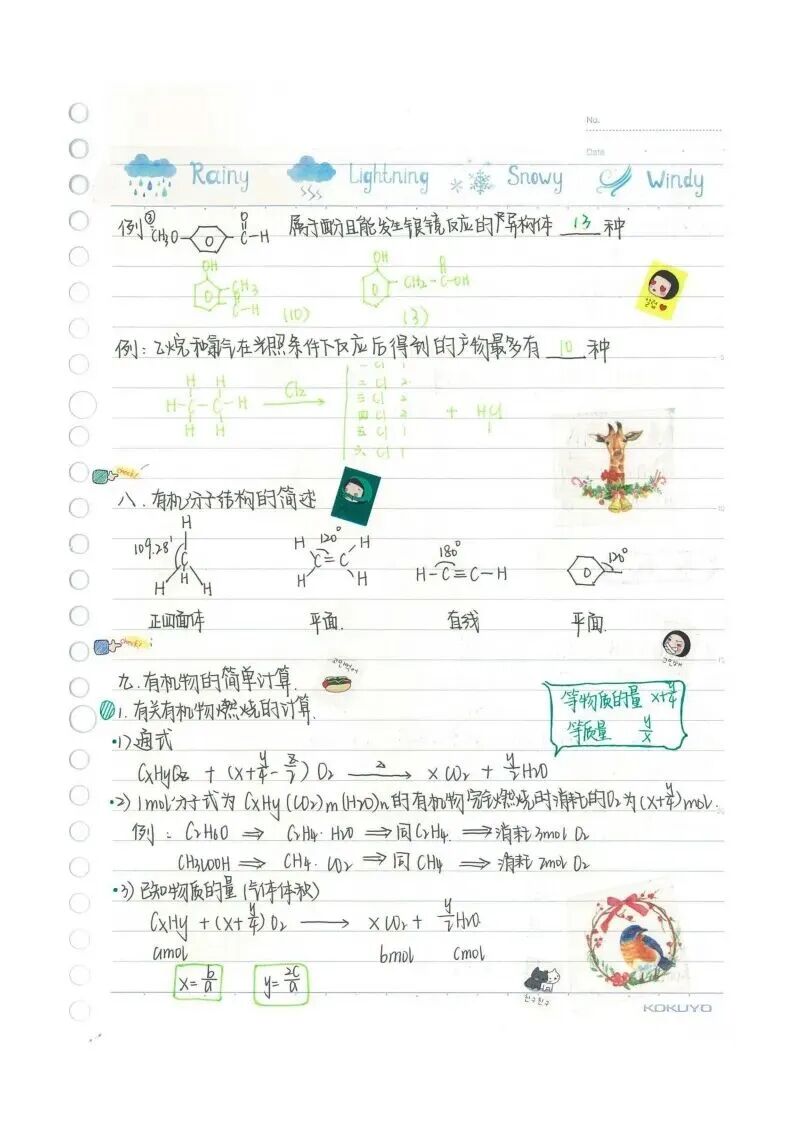 No.
Date
Rainy Lightning Snowy Windy
例② CH₃O- -C-H 属于酚且能发生银镜反应的同分异构体 13 种
O
OH OH
CH₃ CH₂-C-OH
C-H
(10) (3)
例：乙烷和氯气在光照条件下反应后得到的产物最多有 10 种
H H
H-C-C-H
H H
Cl₂
一Cl 1
二Cl 2
三Cl 2
四Cl 2
五Cl 1
六Cl 1
+ HCl
1
check!
八.有机分子结构的简述
109.28' 120° 180° 120°
H-C≡C-H
正四面体 平面. 直线 平面.
check!
九.有机物的简单计算.
1.有关有机物燃烧的计算.
等物质的量 x+y/4
等质量 y/x
·1)通式
CxHyOz + (x+y/4-z/2)O₂ → xCO₂ + y/2H₂O
·2) 1mol分子式为CxHy(CO₂)m(H₂O)n的有机物完全燃烧时消耗的O₂为(x+y/4)mol.
例：C₂H₆O ⇒ C₂H₄·H₂O ⇒同C₂H₄ ⇒消耗3mol O₂
CH₃COOH ⇒ CH₄·CO₂ ⇒同CH₄ ⇒消耗2mol O₂
·3)已知物质的量(气体体积)
CxHy + (x+y/4)O₂ → xCO₂ + y/2H₂O
amol bmol cmol
x=b/a y=2c/a
친구친구
KOKUYO